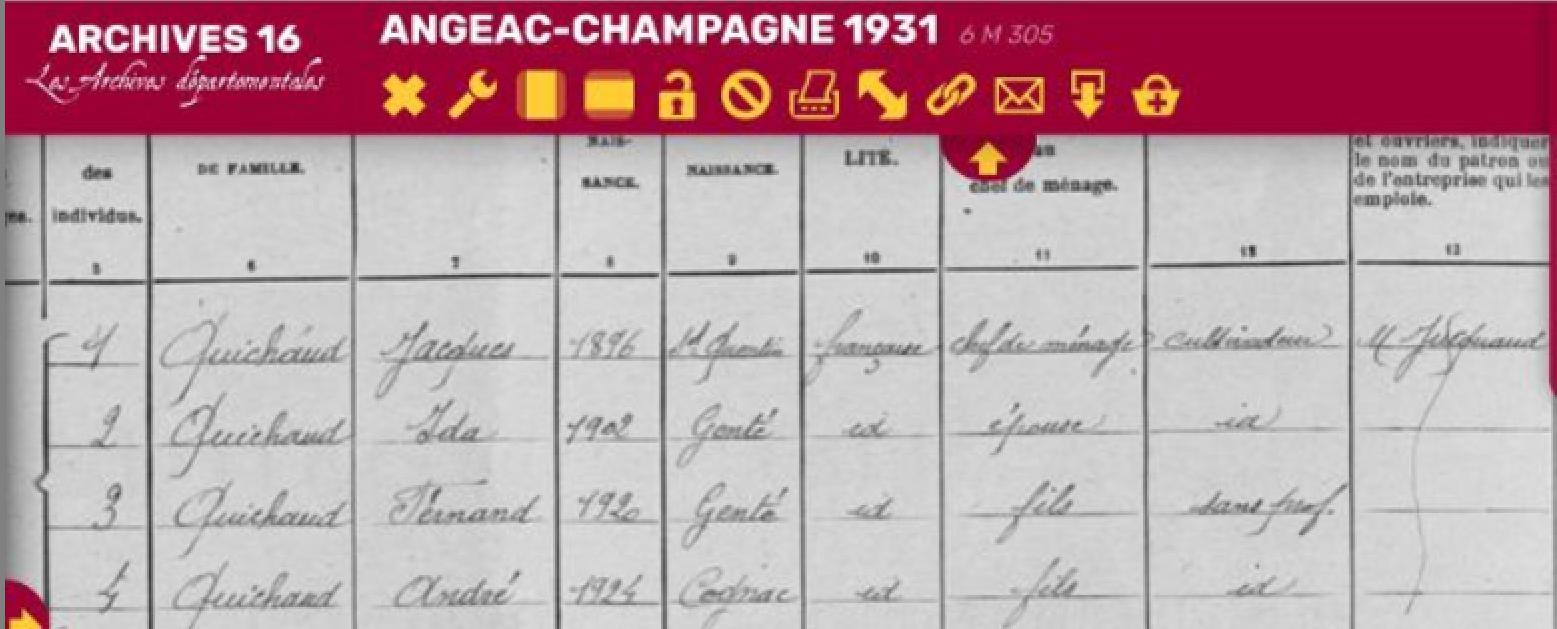 ARCHIVES 16
Les Archives départementales
ANGEAC-CHAMPAGNE 1931 6 M 305
des individus.
5
DE FAMILLE.
6
7
NAIS-
SANCE.
8
NAISSANCE.
9
LITÉ.
10
au
chef de ménage.
11
12
et ouvriers, indiquer
le nom du patron ou
de l'entreprise qui les
emploie.
13
Quichaud Jacques 1896 St Quentin française chef de ménage cultivateur M
2 Quichaud Ida 1902 Genté id épouse id
3 Quichaud Fernand 1920 Genté id fils sans prof.
4 Quichaud André 1924 Cognac id fils id